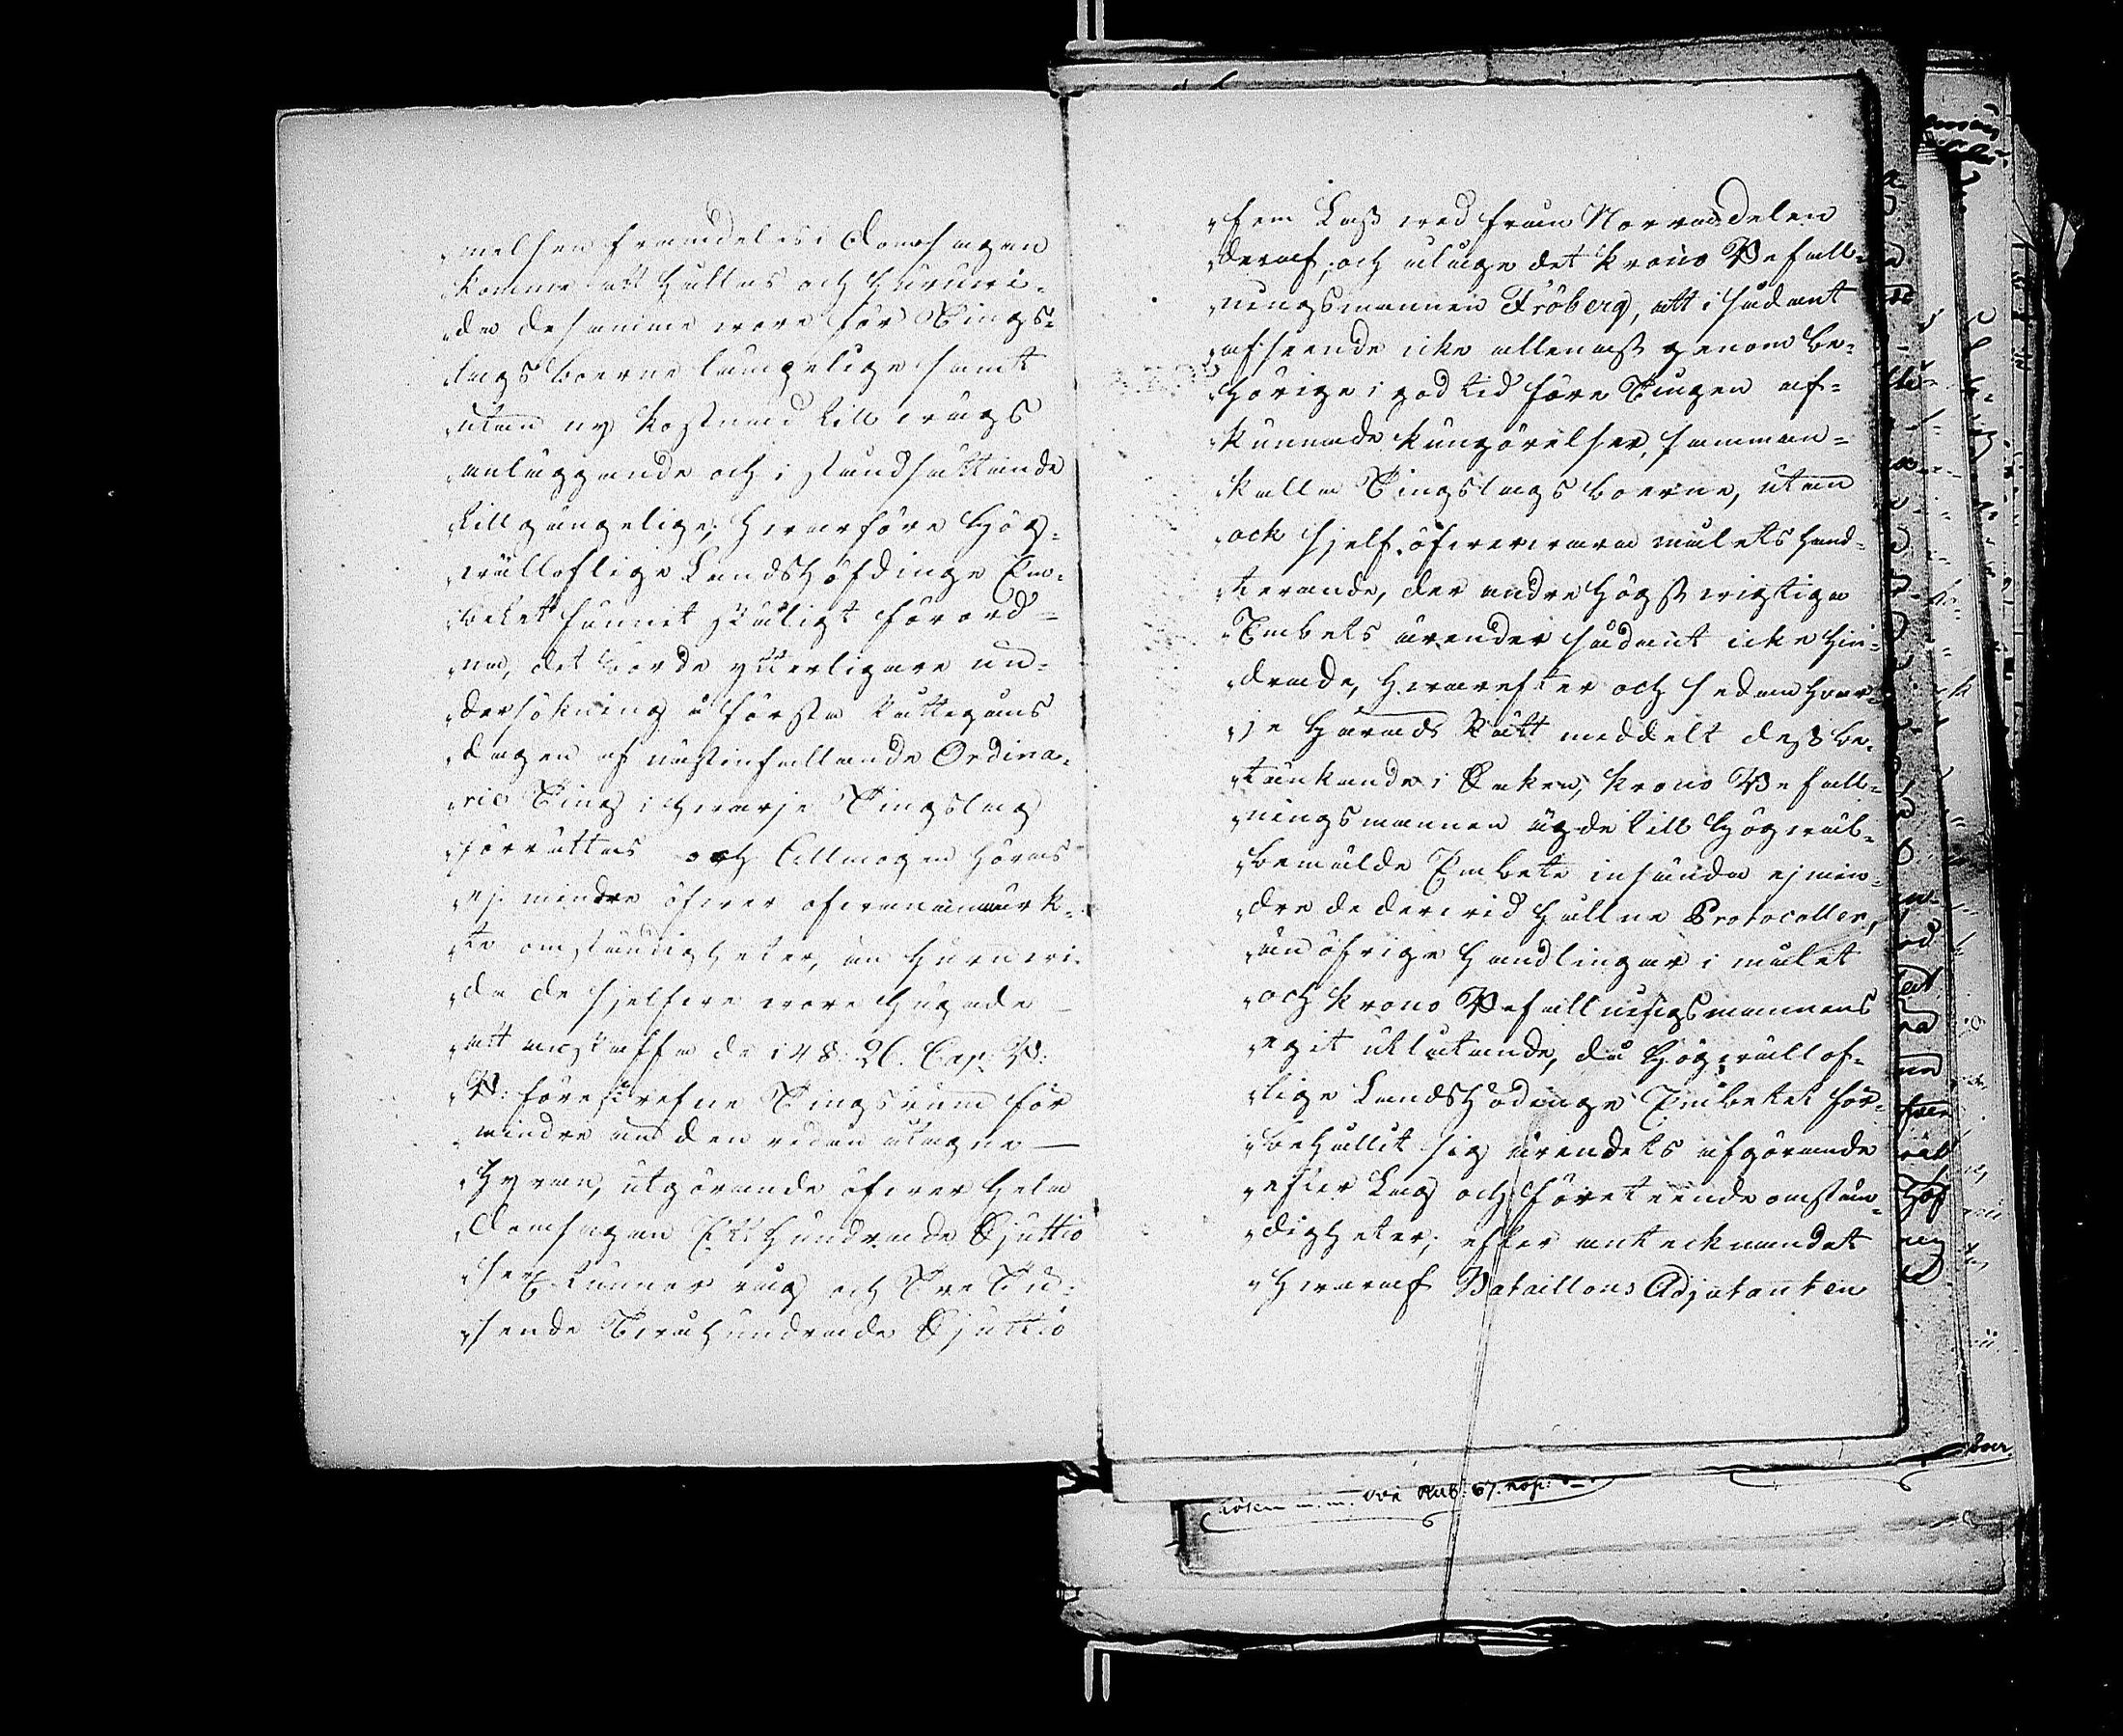 „melsen framdeles i Domsagen
„komme att hållas och huruvi„
„da desamme wore för Tings„
„lags boerne lämpelige samt
„utan ny kostnad till wägs
„anläggande och i ståndsättande
„tillgängelige; hwarföre Hög„
„wälloflige Landshöfdinge Em„
„betet funnit skäligt förord„
„na, det borde ytterligare un„
„dersökning å första Rättegångs
„dagen af nästinfallande Ordina„
„rie Ting i hwarje Tingslag
„förrättas och Allmogen höras
„ej mindre öfwer ofwananmärk„
„te omständigheter, än huruwi„
„da de sjelfwe wore hugade
„att anskaffa de i 4 §. 26. Cap: B:
„B: föreskrefne Tingsrum för
„mindre än den redan utagne —
„hyran, utgörande öfwer hela
„Domsagan Ett Hundrade Sjuttio
„sex Tunnor råg och Tre Tu„
„sende Twåhundrade Sjuttio
„fem Lass wed från Norra delen
„deraf; och ålåge det krono Befall„
„ningsmannen Fröberg, att i sådant
„afseende icke allenast genom be„
„hörige i god tid före Tingen af„
„kunnade kungörelser, samman„
„kalla Tingslags boerne, utan
„ock sjelf öfwerwara målets hand„
„terande, der andre högst wigtiga
„Embets ärender sådant icke hin„
„drade, hwarefter och sedan hwar„
„je Härads Rätt meddelt dess be„
„tänkande i Saken, krono Befall„
„ningsmannen ägde till Högwäl„
„bemälde Embete insända ej min„
„dre de derwid hållne Protocoller,
„än öfrige Handlingar i målet
„och krono Befallningsmannens
„eget utlåtande, då Högwällof„
„lige Landshödinge Embetet för„
„behållit sig ärendets afgörande
„efter Lag och företeende omstän„
„digheter; efter antecknandet
„hwaraf Bataillons Adjutanten